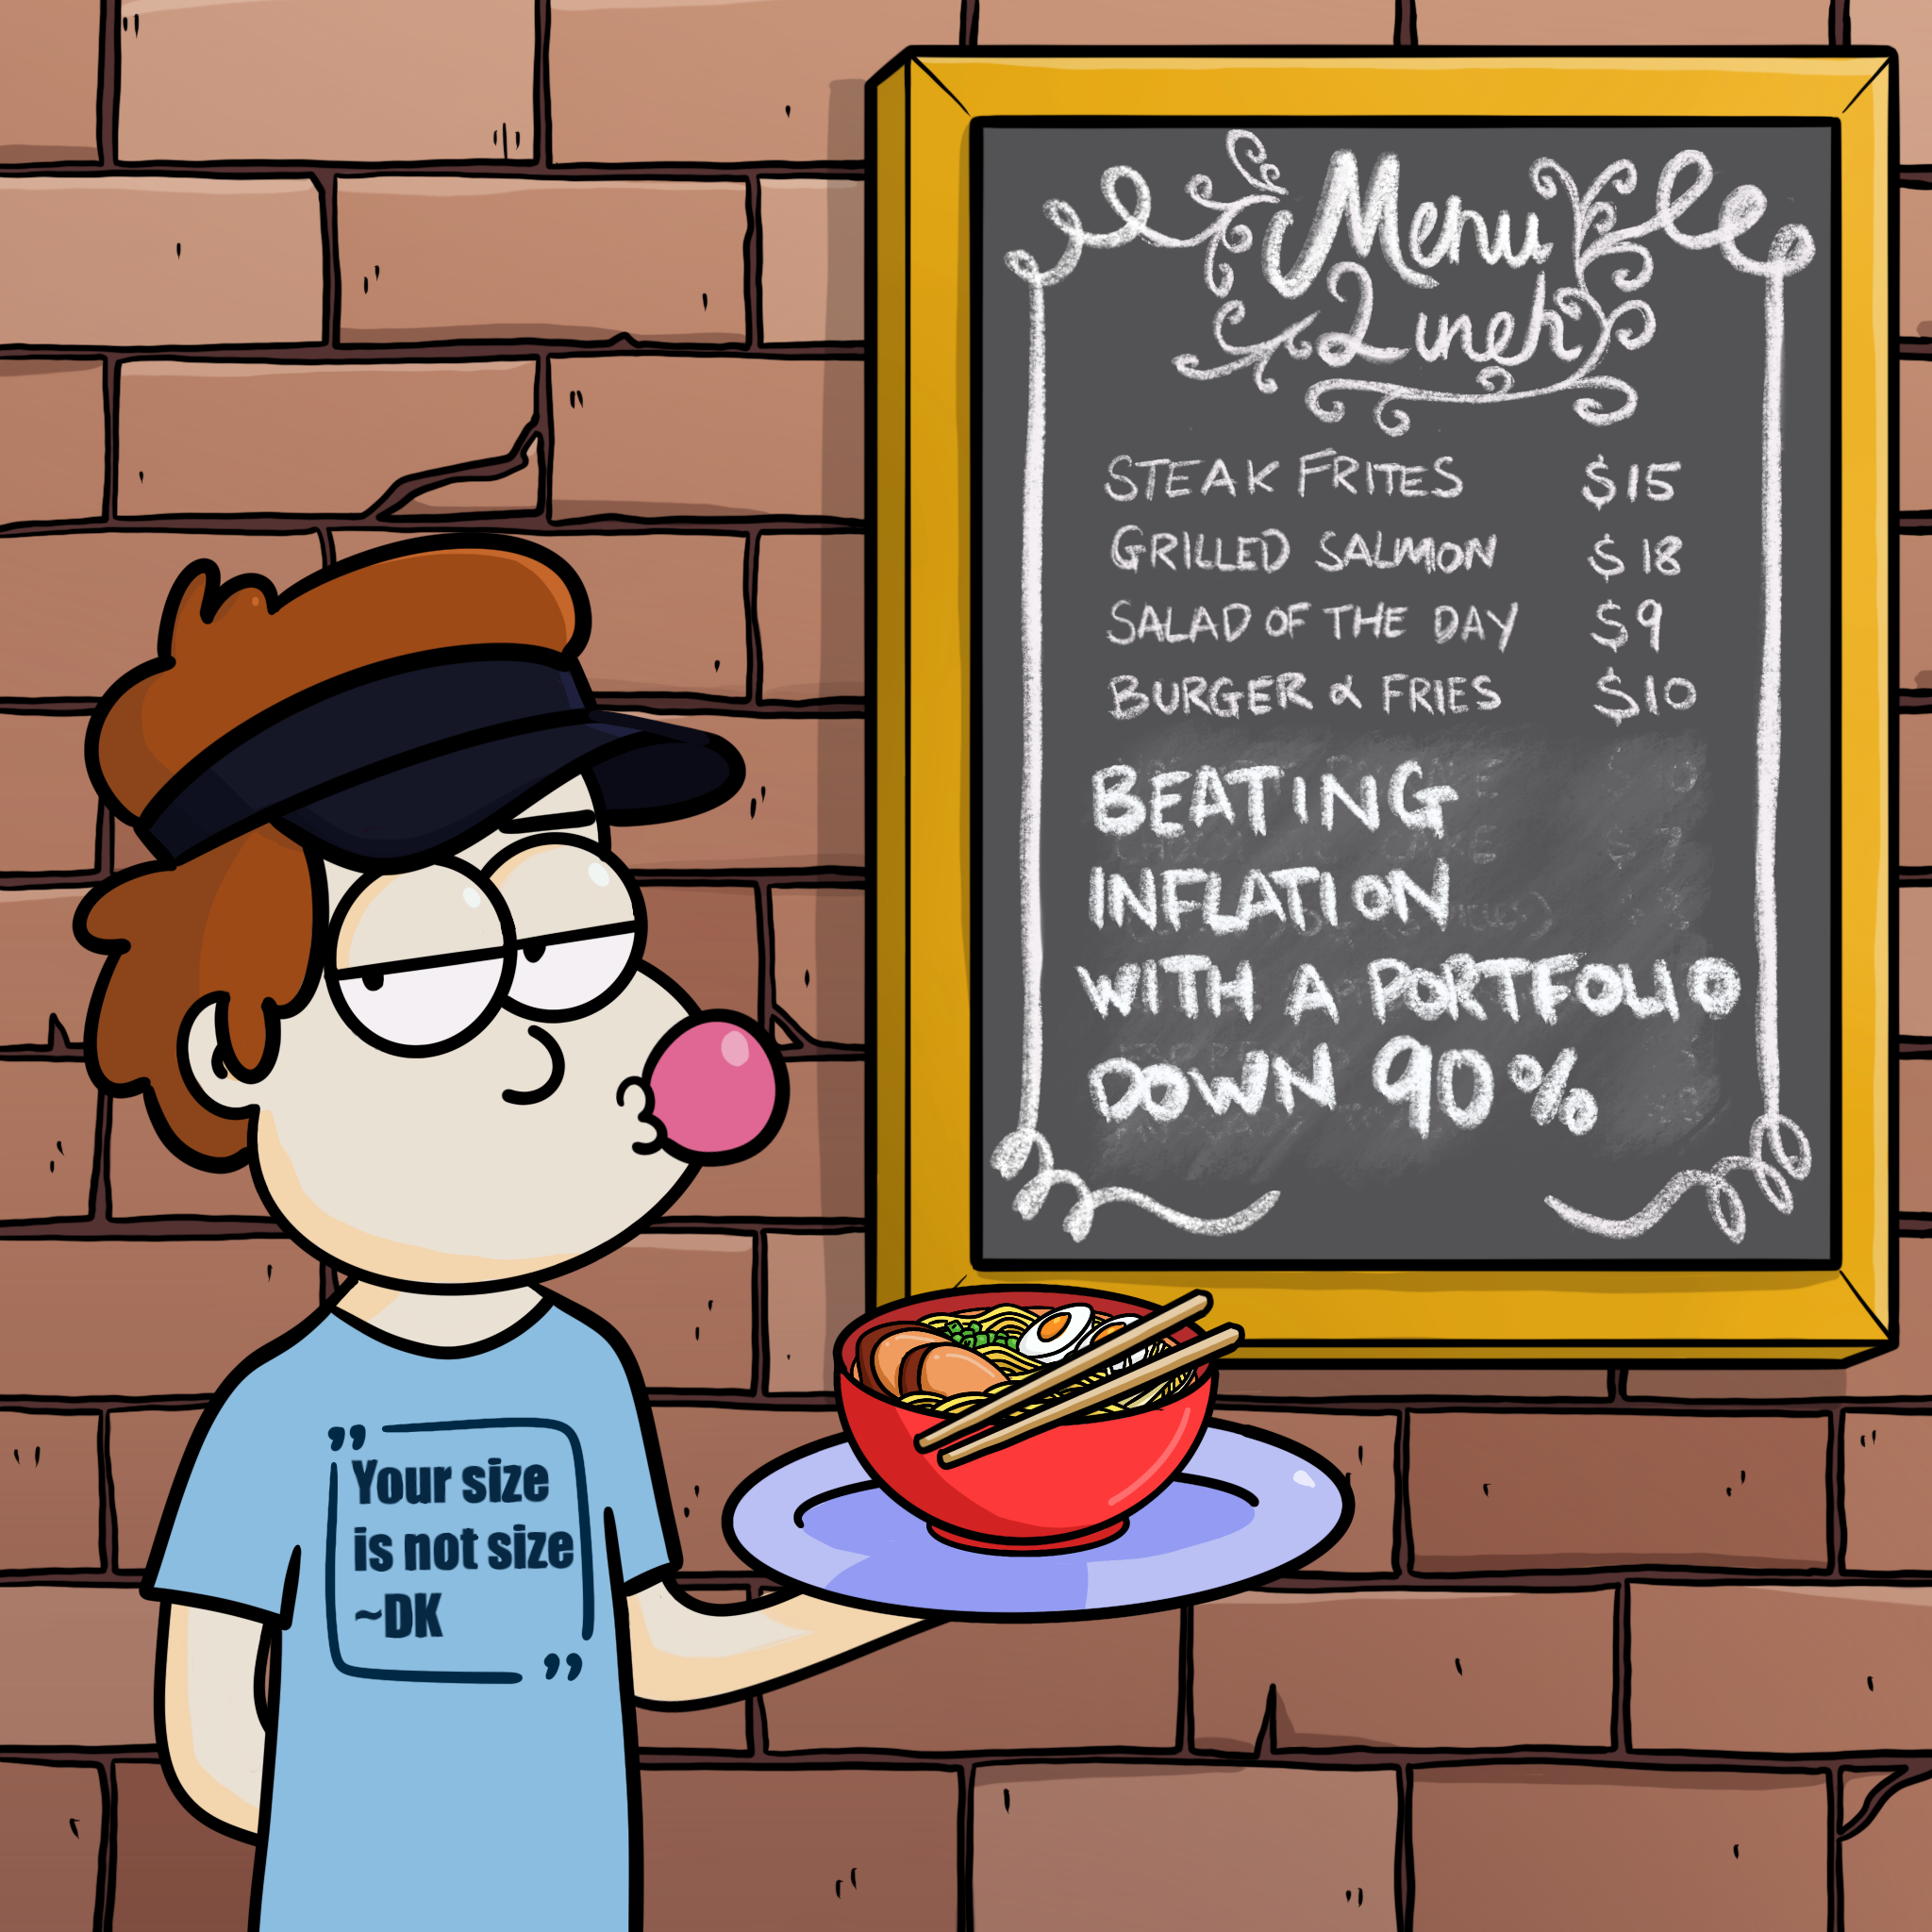 Menu
Lunch
STEAK FRITES $15
GRILLED SALMON $18
SALAD OF THE DAY $9
BURGER & FRIES $10
BEATING
INFLATION
WITH A PORTFOLIO
DOWN 90%
"Your size
is not size
~DK"